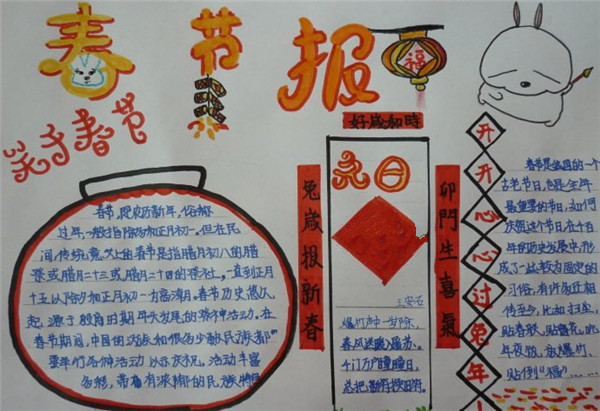 春节报
福
关于春节
春节，是农历新年，俗称
过年，一般指除夕和正月初一。但在民
间传统意义上的春节是指腊月初八的腊
祭或腊月二十三或腊月二十四的祭社，一直到正月
十五以除夕和正月初一为高潮日。春节历史悠久
起源于殷商时期年头岁尾的祭神活动。在
春节期间，中国的汉族和很多少数民族都
要举行各种活动以示庆祝。活动丰富
多彩，带有浓郁的民族特
好歲和時
兔歲报新春
卯門生喜氣
元日
王安石
爆竹声中一岁除，
春风送暖入屠苏。
千门万户曈曈日，
总把新符换旧符。
开开心心过兔年
春节是我国的一个
古老节日，也是全年
最重要的节日，如何
庆祝这个节日在千百
年的历史发展中，形
成了一些较为固定的
习俗，有许多还相
传至今，比如扫尘，
贴春联，贴窗花，吃
年夜饭，放爆竹，
贴倒“福”……